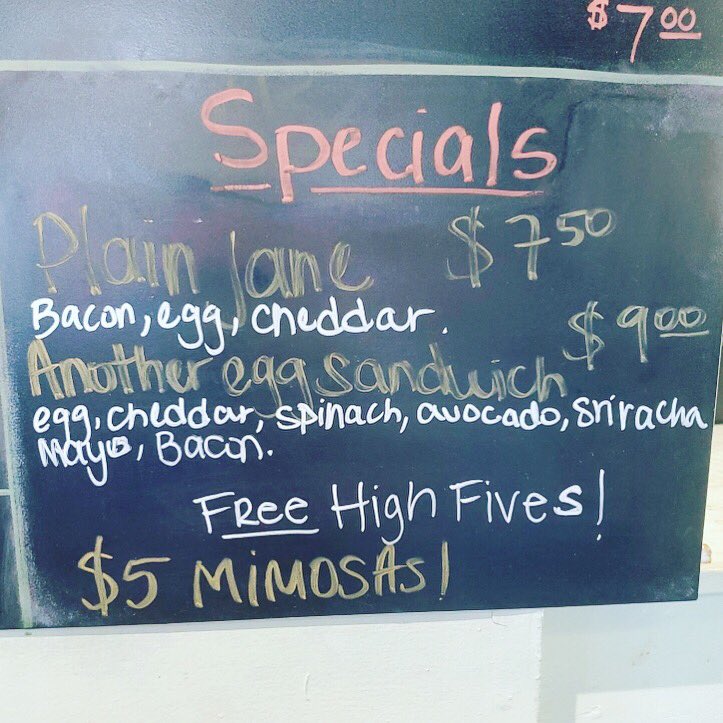 $7 00
Specials
Plain Jane $7 50
Bacon, egg, cheddar.
Another egg sandwich $9 00
egg, cheddar, spinach, avocado, Sriracha
Mayo, Bacon.
FREE High Fives!
$5 MiMOSAs!